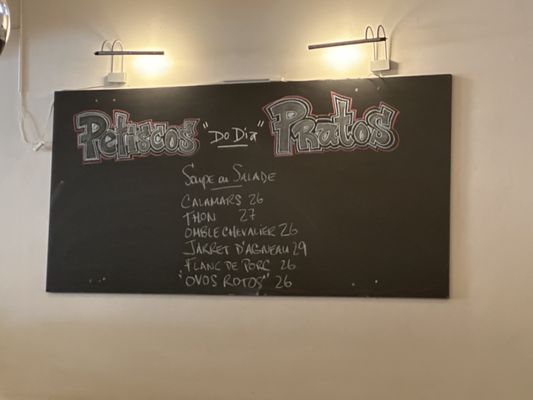 Petiscos "Do Dia" Pratos
Soupe ou Salade
CALAMARS 26
THON 27
OMBLE CHEVALIER 26
JARRET D'AGNEAU 29
FLANC DE PORC 26
"OVOS ROTOS" 26